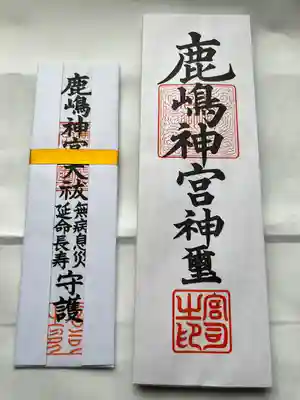 鹿嶋神宮神璽
宮司之印
鹿嶋神宮大祓
無病息災
延命長寿
守護